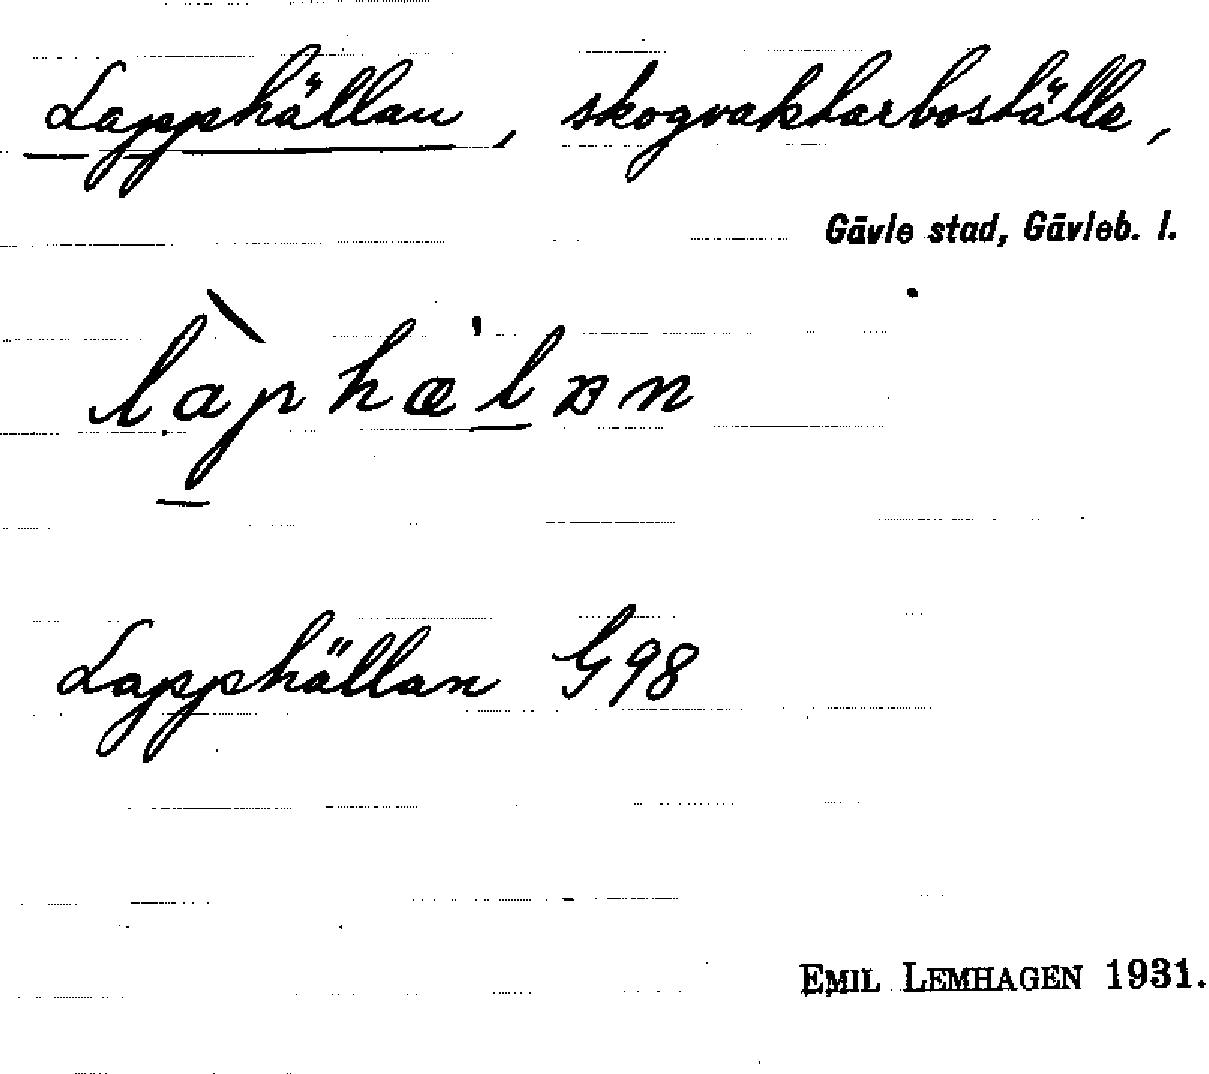 Lapphällan, skogvaktarboställe,
Gävle stad, Gävleb. l.
Lapphällan G98
EMIL LEMHAGEN 1931.